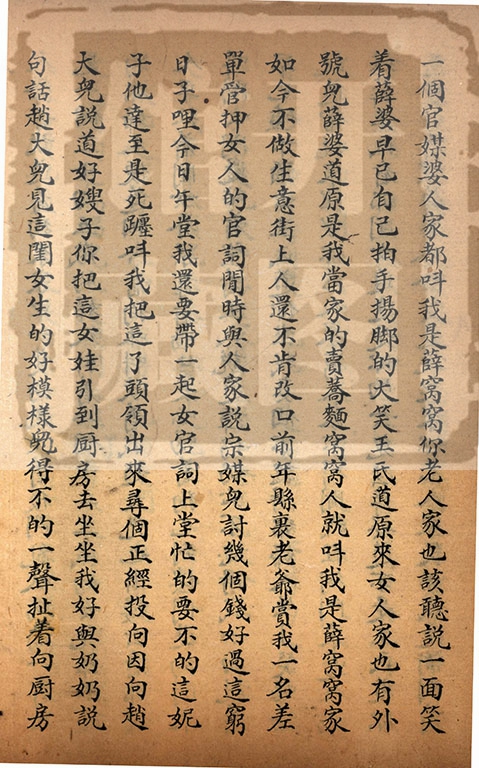 一個官媒婆人家都叫我是薛窩窩你老人家也該聽說一面笑
着薛婆早已自己拍手揚脚的大笑王氏道原來女人家也有外
號兒薛婆道原是我當家的賣蕎麵窩窩人就叫我是薛窩窩家
如今不做生意街上人還不肯改口前年縣裏老爺賞我一名差
單管押女人的官詞閒時與人家説宗媒兒討幾個錢好過這窮
日子哩今日午堂我還要帶一起女官詞上堂忙的要不的這妮
子他達至是死𨇽叫我把這了頭領出來尋個正經投向因向趙
大兒說道好嫂子你把這女娃引到厨房去坐坐我好與奶奶説
句話趙大兒見這閨女生的好模樣兒得不的一聲扯着向厨房